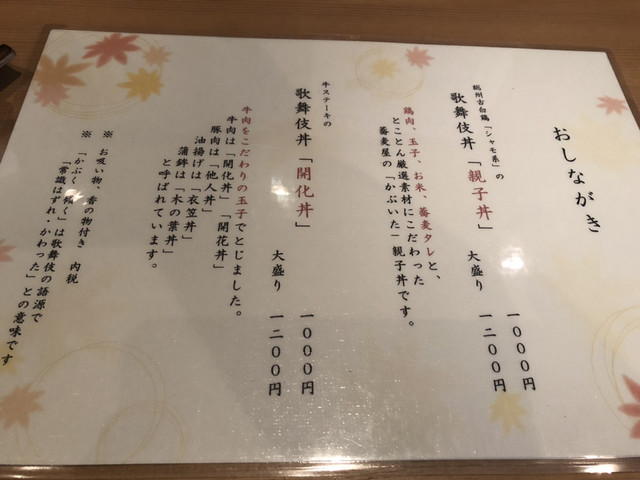 おしながき
総州古白鶏「シャモ系」の
歌舞伎丼「親子丼」
一〇〇〇円
大盛り 一二〇〇円
鶏肉、玉子、お米、蕎麦タレと、
とことん厳選素材にこだわった
蕎麦屋の「かぶいた」親子丼です。
牛ステーキの
歌舞伎丼「開化丼」
一〇〇〇円
大盛り 一二〇〇円
牛肉をこだわりの玉子でとじました。
牛肉は「開化丼」「開花丼」
豚肉は「他人丼」
油揚げは「衣笠丼」
蒲鉾は「木の葉丼」
と呼ばれています。
※ お吸い物、香の物付き 内税
※ 「かぶく 傾く」は歌舞伎の語源で
「常識はずれ・かわった」との意味です